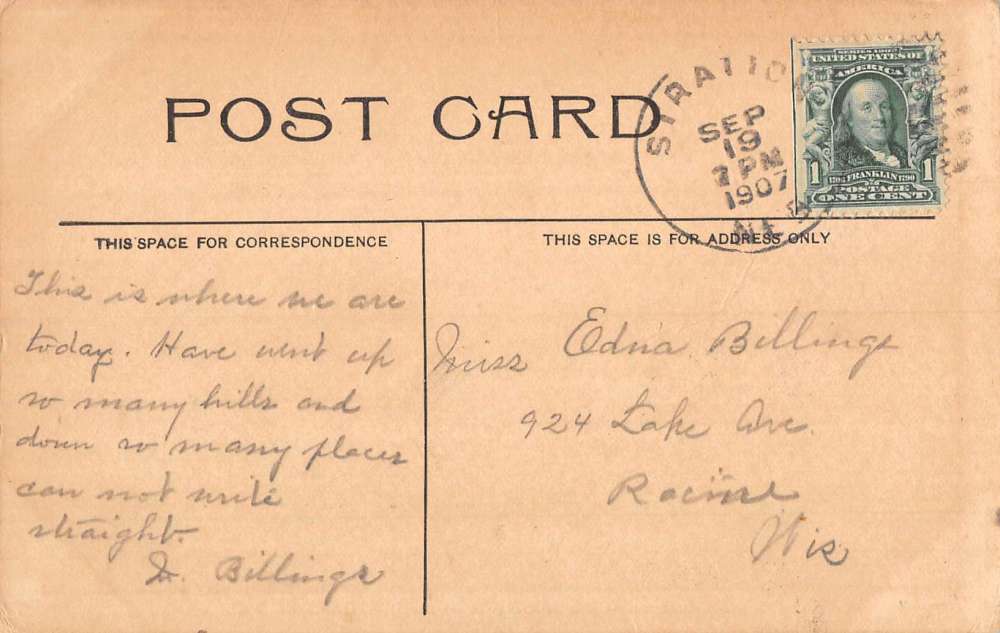 POST CARD
SEP
19
PM
1907
SERIES 1902
UNITED STATES OF
AMERICA
1 1
FRANKLIN 1790
POSTAGE
ONE CENT
THIS SPACE FOR CORRESPONDENCE
THIS SPACE IS FOR ADDRESS ONLY
This is where we are
today. Have went up
so many hills and
down so many places
can not write
straight.
Billings
Miss Edna Billings
924 Lake Ave.
Racine
Wis